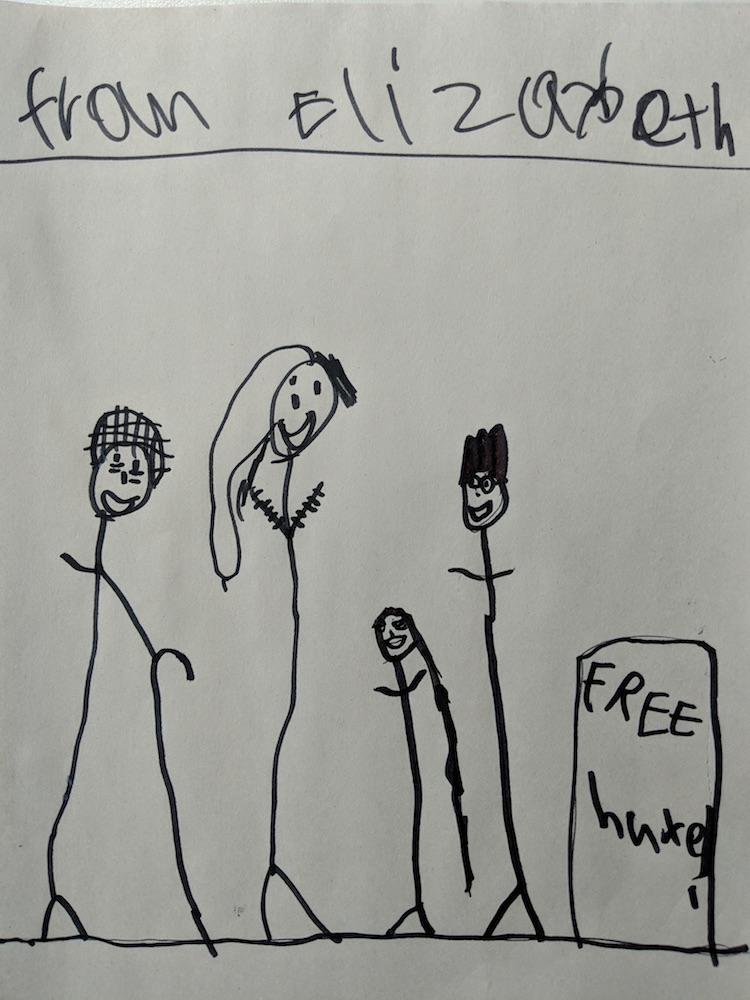 from Elizabeth
FREE
hate!